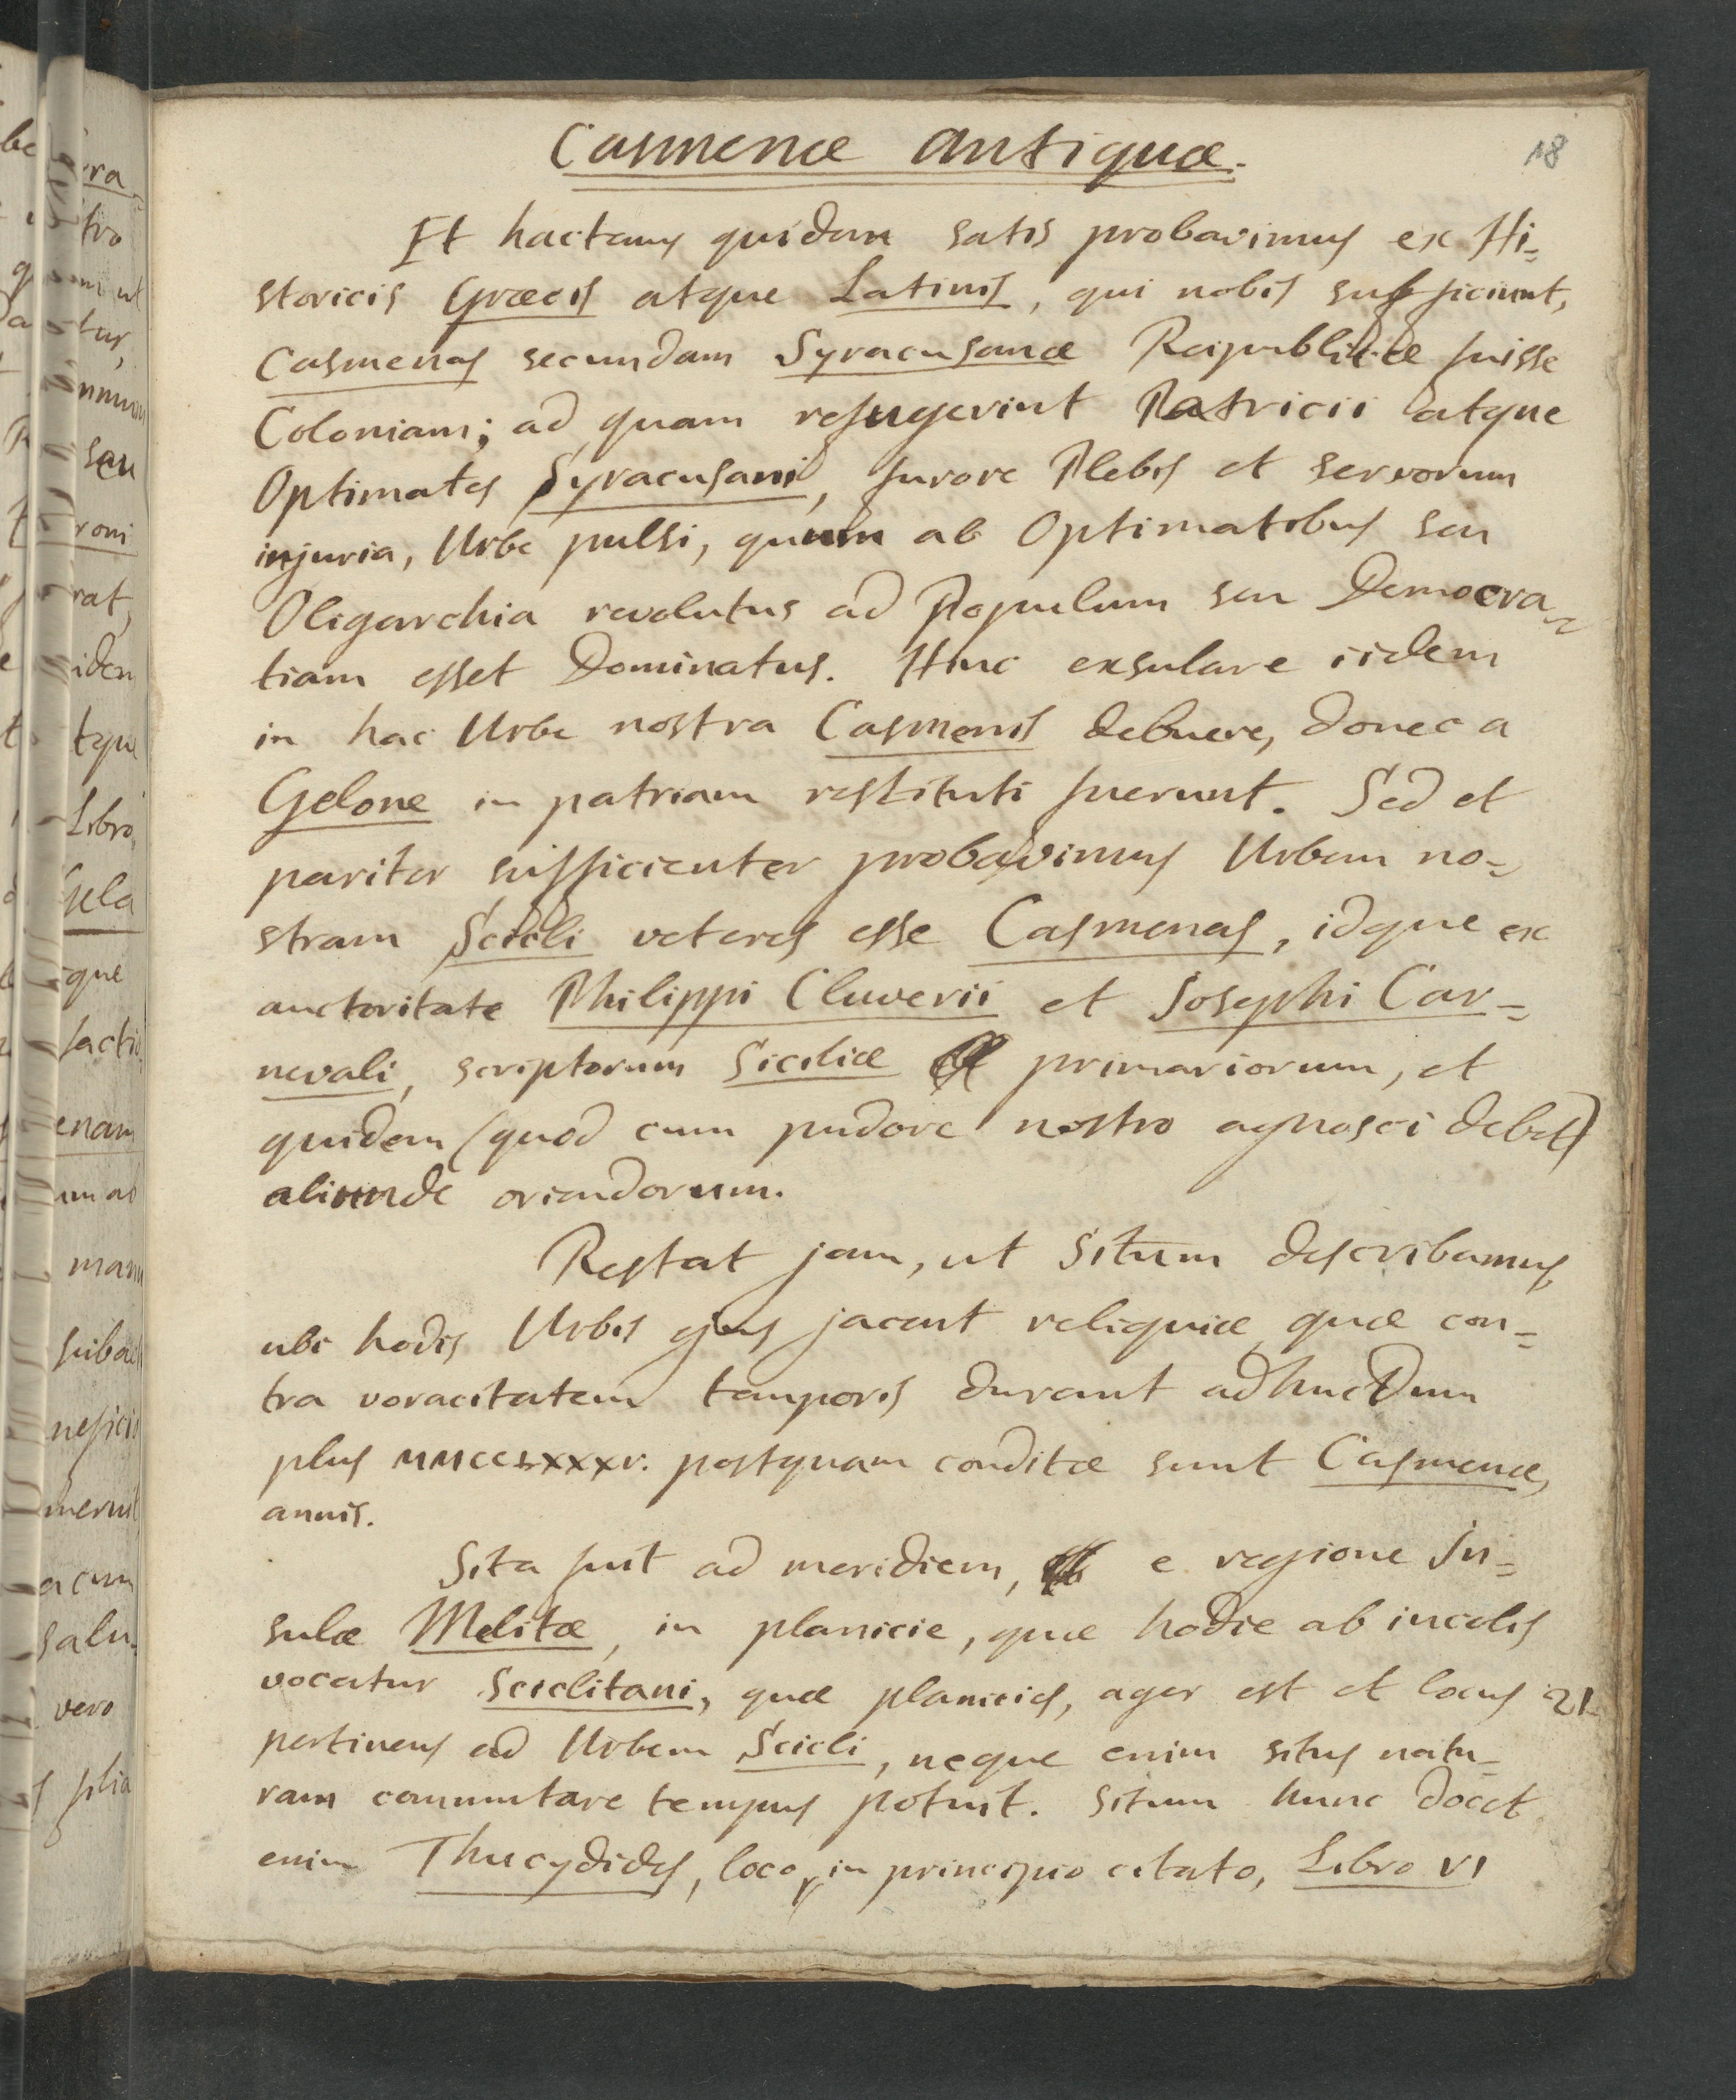 Casmenæ antiquæ.
18
Et hactenus quidem satis probavimus ex Hi=
storicis Græcis atque Latinis, qui nobis sufficiunt,
Casmenas secundam Syracusanæ Reipublicæ fuisse
Coloniam; ad quam refugerint Patricii atque
Optimates Syracusani, furore Plebis et servorum
injuria, Urbe pulsi, quum ab Optimatibus seu
Oligarchia revolutus ad Populum seu Democra=
tiam esset Dominatus. Hinc exsulare iidem
in hac Urbe nostra Casmenis debuere, donec a
Gelone in patriam restituti fuerunt. Sed et
pariter sufficienter probavimus Urbem no=
stram Scicli veteres esse Casmenas, idque ex
auctoritate Philippi Cluverii et Josephi Car=
nevali, scriptorum Siciliæ primariorum, et
quidem (quod cum pudore nostro agnosci debet)
aliunde oriundorum.
Restat jam, ut Situm describamus,
ubi hodie Urbis ejus jacent reliquiæ, quæ con=
tra voracitatem temporis durant adhucdum
plus MMCCLXXXV. postquam conditæ sunt Casmenæ,
annis.
Sita fuit ad meridiem, e regione In=
sulæ Melitæ, in planicie, quæ hodie ab incolis
vocatur Scicclitani, quæ planicies, ager est et locus 21
pertinens ad Urbem Scicli, neque enim situs natu=
ram commutare tempus potuit. Situm hunc docet
enim Thucydides, loco in principio citato, Libro VI